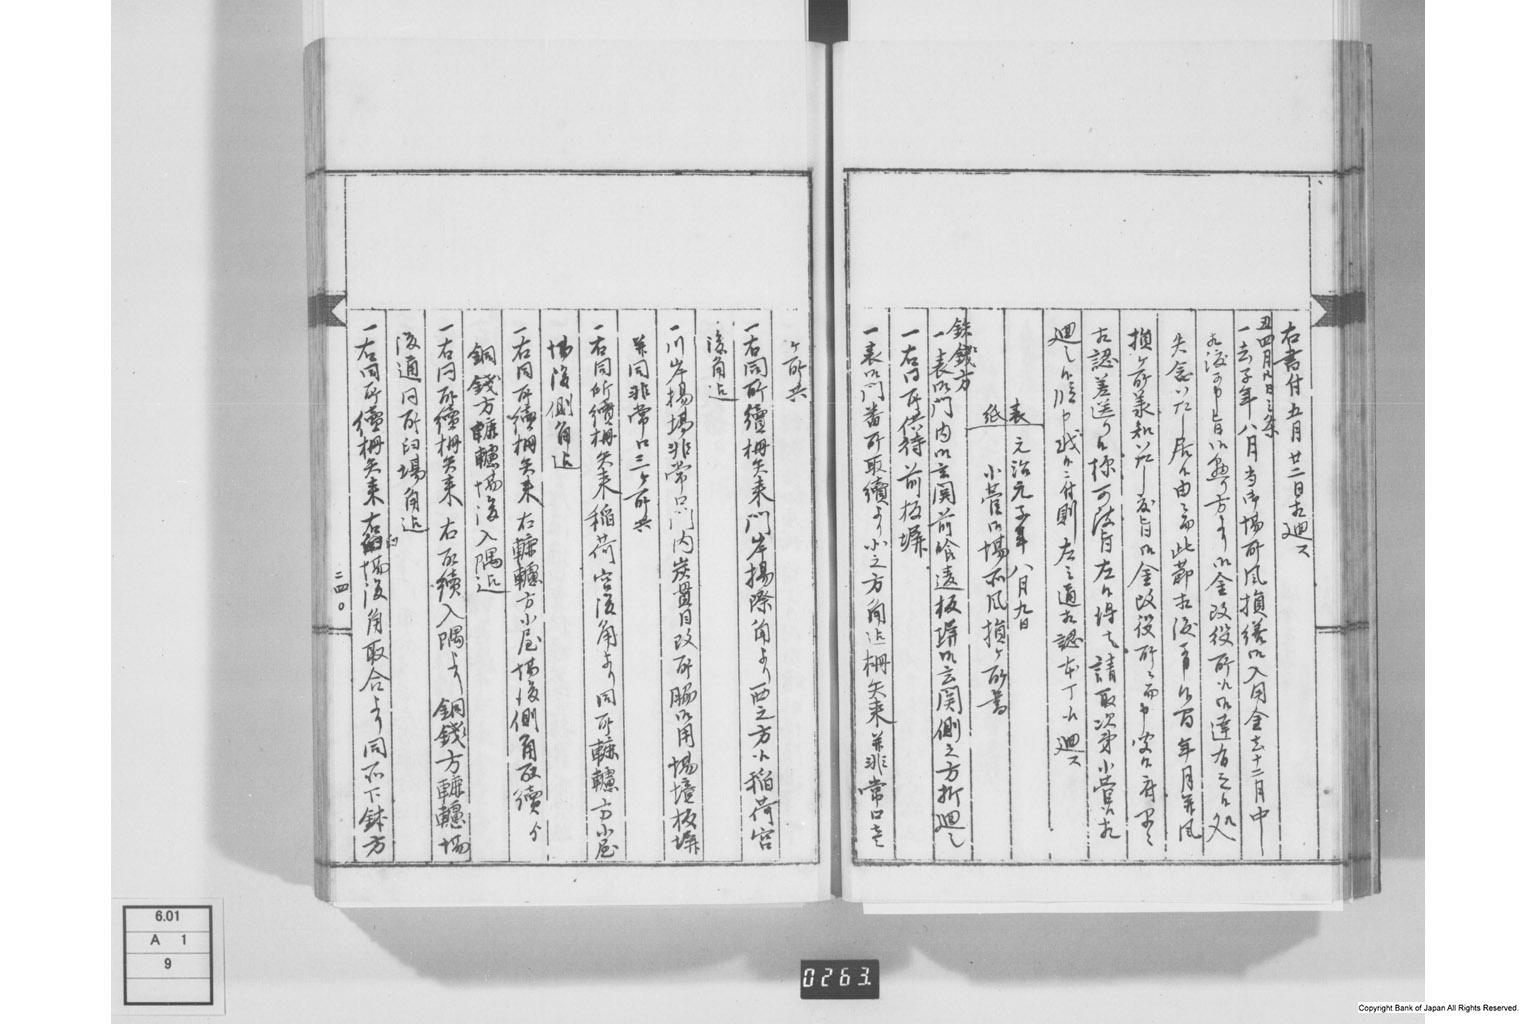 右書付五月廿二日相廻ス
丑四月
一去子年八月当御場所風損繕御入用金去十二月中
相渡可申旨御勢方より御金改役所江御達有之候処
失念いたし居候由ニ而此節相渡 候間年月并風
損ヶ所承知いたし度旨御金改役所ニ而申聞候
相認差送り候様可致旨 請取次第小菅江相
廻し候 左之通相認本丁江廻ス
表
紙
元治元子年八月九日
小菅御場所風損ヶ所書
鉄銭方
一表御門内御玄関前喰違板塀御玄関側之方折廻し
一右同所供待前板塀
一表御門番所取続より北之方角迄柵矢来并非常口壱
ヶ所共
一右同所続柵矢来門岸揚際角より西之方江稲荷宮
後角迄
一川岸揚場非常口門内炭貫目改所脇御用場境板塀
并同非常口三ヶ所共
一右同所続柵矢来稲荷宮後角より同所轆轤方小屋
場後側角迄
一右同所続柵矢来右轆轤方小屋場後側角取続より
銅銭方轆轤場後入隅迄
一右同所続柵矢来右取続入隅より銅銭方轆轤場
後通同所臼場角迄
一右同所続柵矢来右臼場後角取合より同所下鉢方
二四〇
6.01
A 1
9
0263.
Copyright Bank of Japan All Rights Reserved.